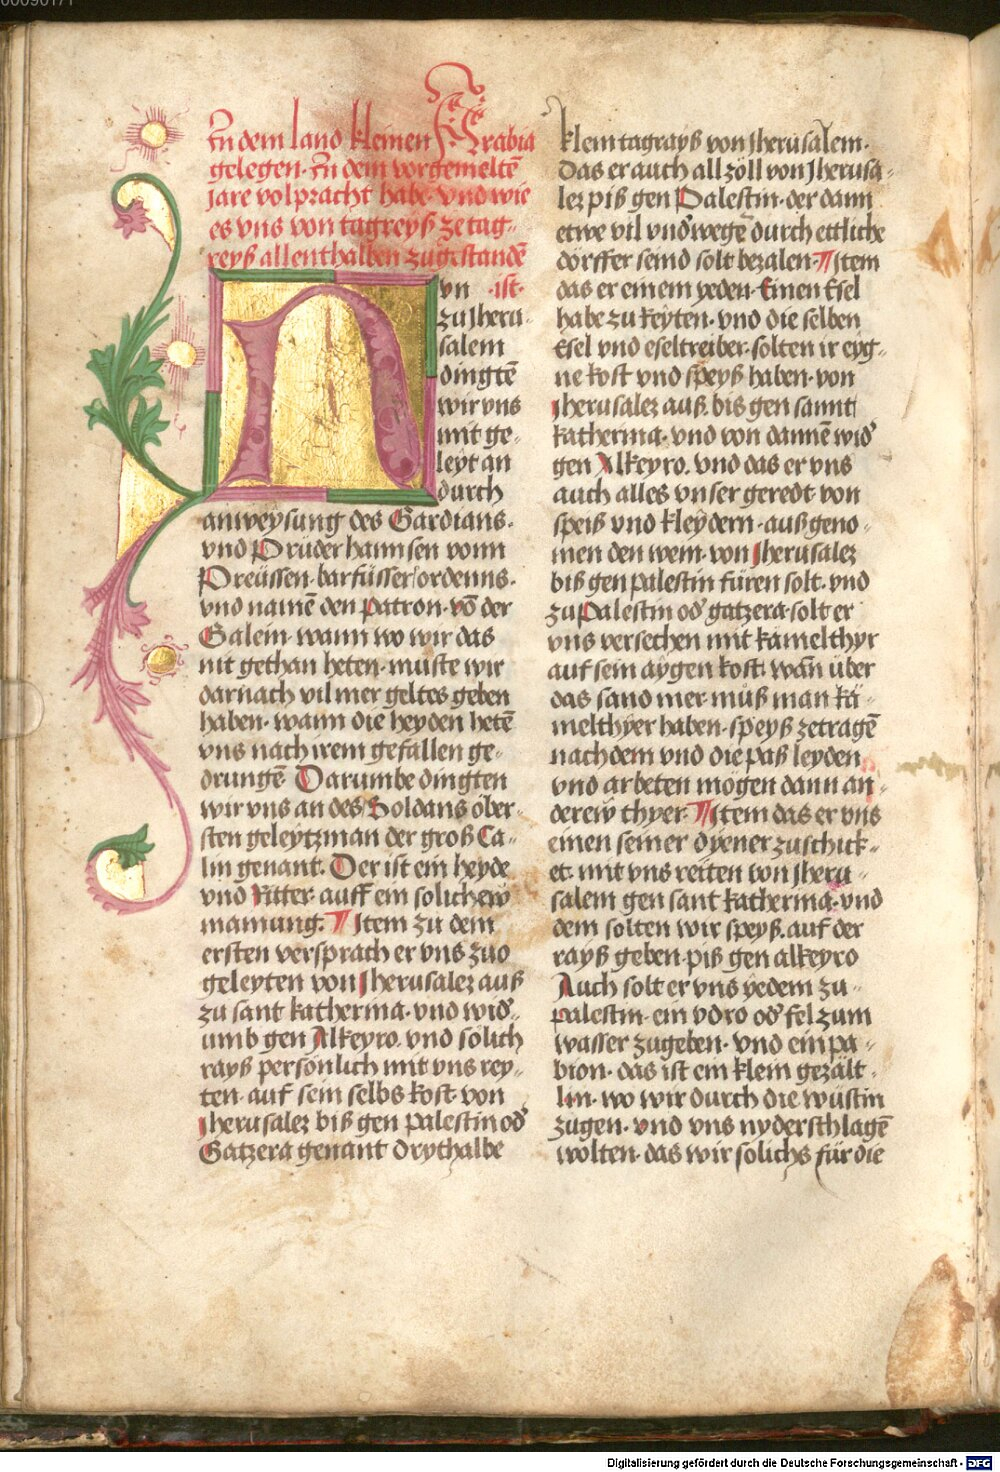 00090171
Jn dem land kleinen Arabia
gelegen· Jn dem vorgemeltē
jare volpracht habe· vnd wie
es vns von tagreyß ze tag-
reyß allenthalben zugestandē
·ist·
Nvn
zu Jheru-
salem
dingtē
wir vns
mit ge-
leyt an
durch
anweysung des Gardians·
vnd Prüder hannsen vonn
Preüssen· barfüsser ordenns·
vnd namē den patron· vō der
Galein· wann wo wir das
nit gethan heten· muste wir
darnach vil mer geltes geben
haben· wann die heyden hetē
vns nach irem gefallen ge-
drungē Darumbe dingten
wir vns an des Soldans ober-
sten geleytzman der groß Ca-
lin genant· Der ist ein heyde
vnd Ritter· auff ein solichew
mainung· ¶ Jtem zu dem
ersten versprach er vns zuo
geleyten von Jherusalez auß
zu sant katherina· vnd wid᷑
umb gen Alkeyro· vnd solich
rayß persönlich mit vns rey-
ten· auf sein selbs kost· von
Jherusalez biß gen palestin od᷑
Gatzera genant drythalbe
klein tagrayß von Jherusalem·
Das er auch all zöll von Jherusa-
lez piß gen Palestin· der dann
etwe vil vnd᷑wegē durch ettliche
dörffer seind solt bezalen· ¶ Jtem
das er einem yeden· Einen Esel
habe zu reyten· vnd die selben
Esel vnd eseltreiber· solten ir eyg-
ne kost vnd speyß haben· von
Jherusalez auß· bis gen sannt
katherina· vnd von dannē wid᷑
gen Alkeyro· vnd das er vns
auch alles vnser geredt von
speiß vnd kleydern· außgeno-
men den wein· von Jherusalez
biß gen palestin füren solt· vnd
zu Palestin od᷑ gatzera· solt er
vns versechen mit kamelthyr
auf sein aygen kost· wān über
das sand mer muß man ka-
melthyer haben· speyß zetragē
nach dem vnd die paß leyden
vnd arbeten mögen dann an-
derew thyer· ¶ Jtem das er vns
einen seiner dyener zuschick-
et· mit vns reiten von Jheru-
salem gen sant katherina· vnd
dem solten wir speyß· auf der
rayß geben· piß gen alkeyro
Auch solt er vns yedem zu
palestin· ein vdro od᷑ fel zum
wasser zugeben· vnd ein pa-
bion· das ist ein klein gezält-
lin· wo wir durch die wüstin
zugen· vnd vns nyderschlagē
wolten· das wir solichs für die
Digitalisierung gefördert durch die Deutsche Forschungsgemeinschaft - DFG